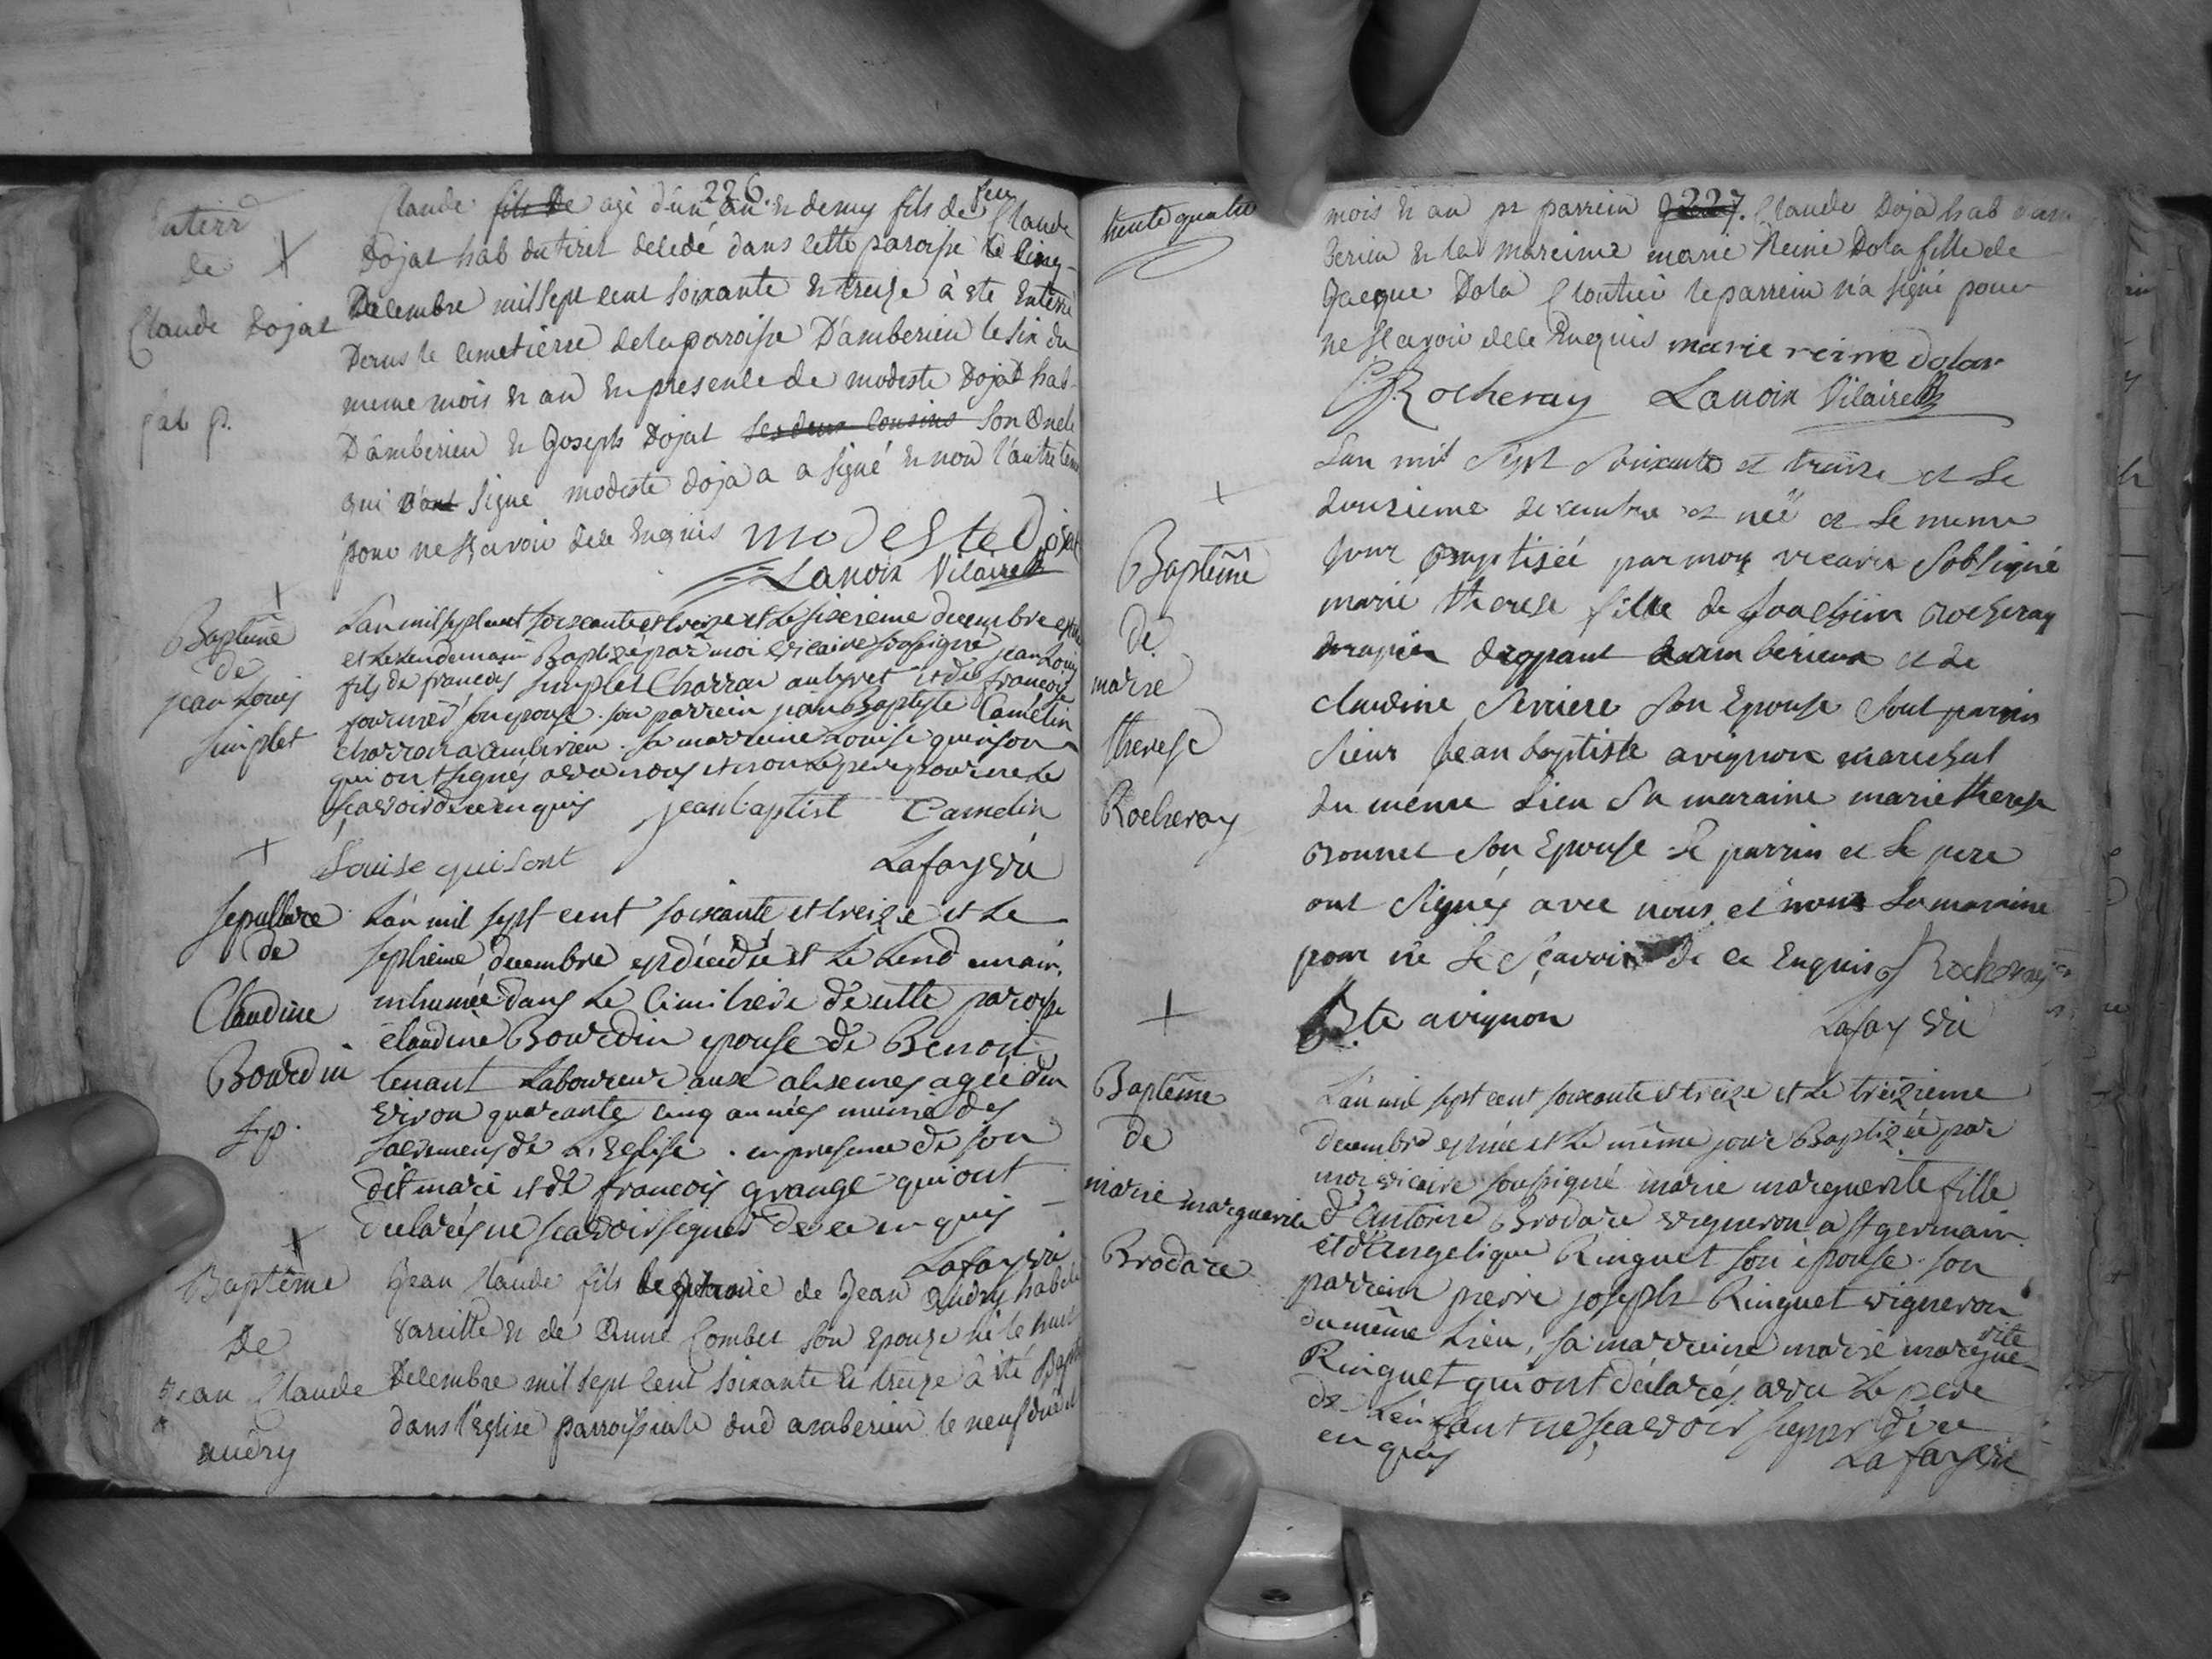 226.
Enterr
de
Claude Dojat
pat p.
Claude fils de agé d'un an & demy fils de feu Claude
Dojat hab du tiret decedé dans cette paroisse le cinq
Decembre mil sept cent soixante & treize à ete Enterré
Dans le cimetierre de la paroisse D'amberieu le six du
meme mois & an en presence de modeste Dojat hab
D'amberieu & Joseph Dojat ses deux cousins son oncle
qui signe modeste doja a a signé & non l'autre
pour ne sçavoir de ce Enquis modeste Dojat
Lanoix Vilaire
Baptême
de
jean Louis
Simplet
L'an mil sept cent soixante et treize et le sixieme decembre est né
et le lendemain Baptizé par moi vicaire soussigné jean Louis
fils de francois Simplet Charron au tiret et de francoise
fournier son epouse. son parrein jean Baptiste Camelin
charron a amberieu. sa marreine Louise quinson
qui ont signés avec nous et non le pere pour ne le
sçavoir de ce enquis jean baptist Camelin
Louise quison Lafay vic
Sepulture
de
Claudine
Bourdin
L'an mil sept cent soixante et treize et le
septieme decembre est décédée et le lendemain
inhumée dans le cimitiere de cette paroisse
claudine Bourdin epouse de Benoit
tenant Laboureur aux alisemes agée d'en
viron quarante cinq années munie des
sacremens de L'Eglise. en presence de son
dit mari et de francois grange qui ont
declarés ne scavoir signer de ce enquis
Lafay vic
Baptême
De
Jean Claude
audry
Jean Claude fils de Jean audry hab de
Vareille & de Anne Combet son epouze né le huit
Decembre mil sept cent soixante & treize à été Baptisé
dans l'Eglise parroissiale dud amberieu le neuf dud
trente quatre
227.
mois & an pr parrein Claude Doja hab d'am
berieu & la mareinne marie Reine Dola fille de
Jacque Dola cloutier le parrein n'a signé pour
ne sçavoir de ce Enquis marie reine dolar
Rocheray Lanoix Vilaire
Baptême
de
marie
therese
Rocheray
L'an mil sept soixante et traize et le
douzieme decembre est née et le meme
jour Baptisée par moy vicaire sobsigné
marie therese fille de Joachim rocheray
drapier dropant d'amberieux et de
claudine Serriere son Epouse son parrin
Sieur Jean baptiste avignon marechal
du meme Lieu Sa maraine marie therese
bonnet son Epouse le parrin et le pere
ont signés avec nous et non La maraine
pour ne le sçavoir de ce Enquis J Rocheray
Bte avignon Lafay vic
Baptême
de
marie marguerite
Brodare
L'an mil sept cent soixante et treize et le treizieme
decembre est née et le même jour Baptizée par
moi vicaire soussigné marie marguerite fille
d'antoine Brodare vigneron a st germain
et d'Angelique Ringuet son epouse. son
parrein pierre joseph Ringuet vigneron
du même Lieu, sa marreine marie margue-
rite
Ringuet qui ont déclarés avec le pere
de L'enfant ne scavoir signer de ce
enquis
Lafay vic